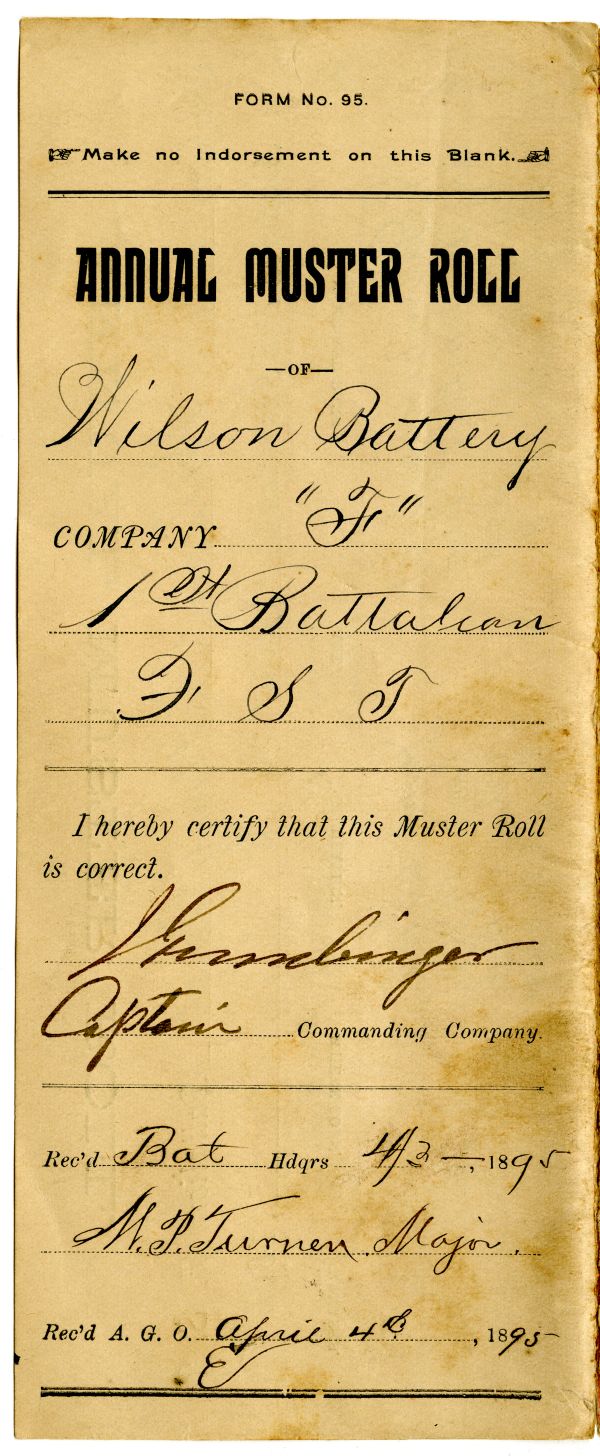 FORM No. 95.
Make no Indorsement on this Blank.
ANNUAL MUSTER ROLL
—OF—
Wilson Battery
COMPANY "F"
1st Battalion
F S T
I hereby certify that this Muster Roll
is correct.
Captain Commanding Company.
Rec'd Bat Hdqrs 4/3 —, 1895
W. P. Turner. Major.
Rec'd A. G. O. April 4th, 1895